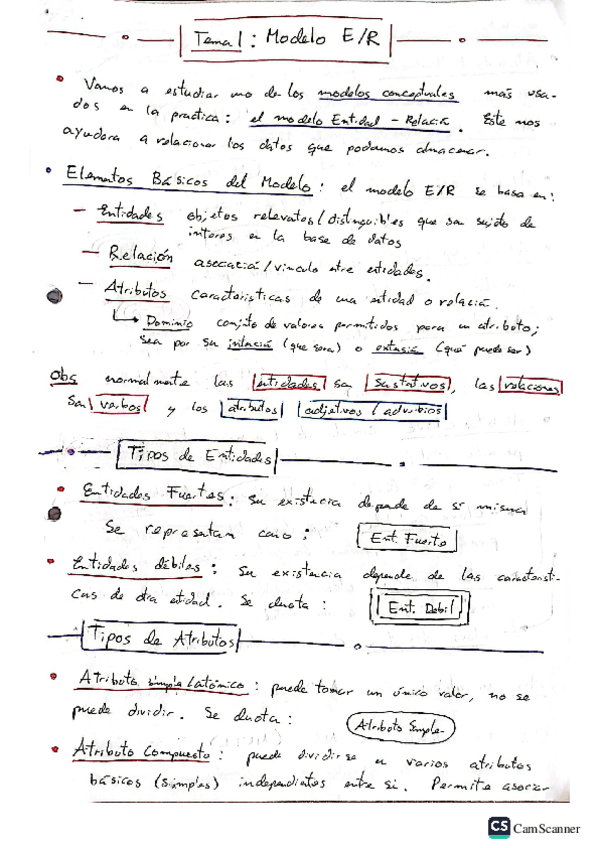 Tema 1: Modelo E/R
• Vamos a estudiar uno de los modelos conceptuales más usa-
dos en la practica: el modelo Entidad - Relación. Este nos
ayudara a relacionar los datos que podamos almacenar.
• Elementos Básicos del Modelo: el modelo E/R se basa en:
- Entidades objetos relevantes/distinguibles que son sujeto de
interes en la base de datos
- Relación asociación/vinculo entre entidades.
- Atributos características de una entidad o relación.
↳ Dominio conjunto de valores permitidos para un atributo;
sea por su intensión (que sera) o extensión (que puede ser)
Obs normalmente las entidades son sustativos, las relaciones
son verbos y los atributos adjetivos/adverbios
Tipos de Entidades
• Entidades Fuertes: Su existencia depende de sí misma
Se representan como: Ent. Fuerte
• Entidades débiles: Su existencia depende de las característi-
cas de otra entidad. Se denota: Ent. Debil
Tipos de Atributos
• Atributo simple/atómico: puede tomar un único valor, no se
puede dividir. Se denota: Atributo Simple
• Atributo Compuesto: puede dividirse en varios atributos
básicos (simples) independientes entre si. Permite asociar
CS CamScanner